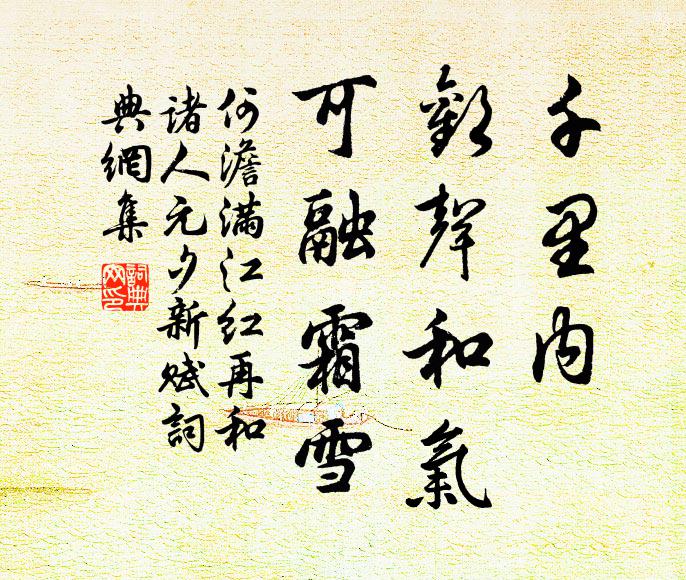 千里内
歡聲和氣
可融霜雪
何澹满江红再和
诸人元夕新赋詞
典網集
詞典
网印